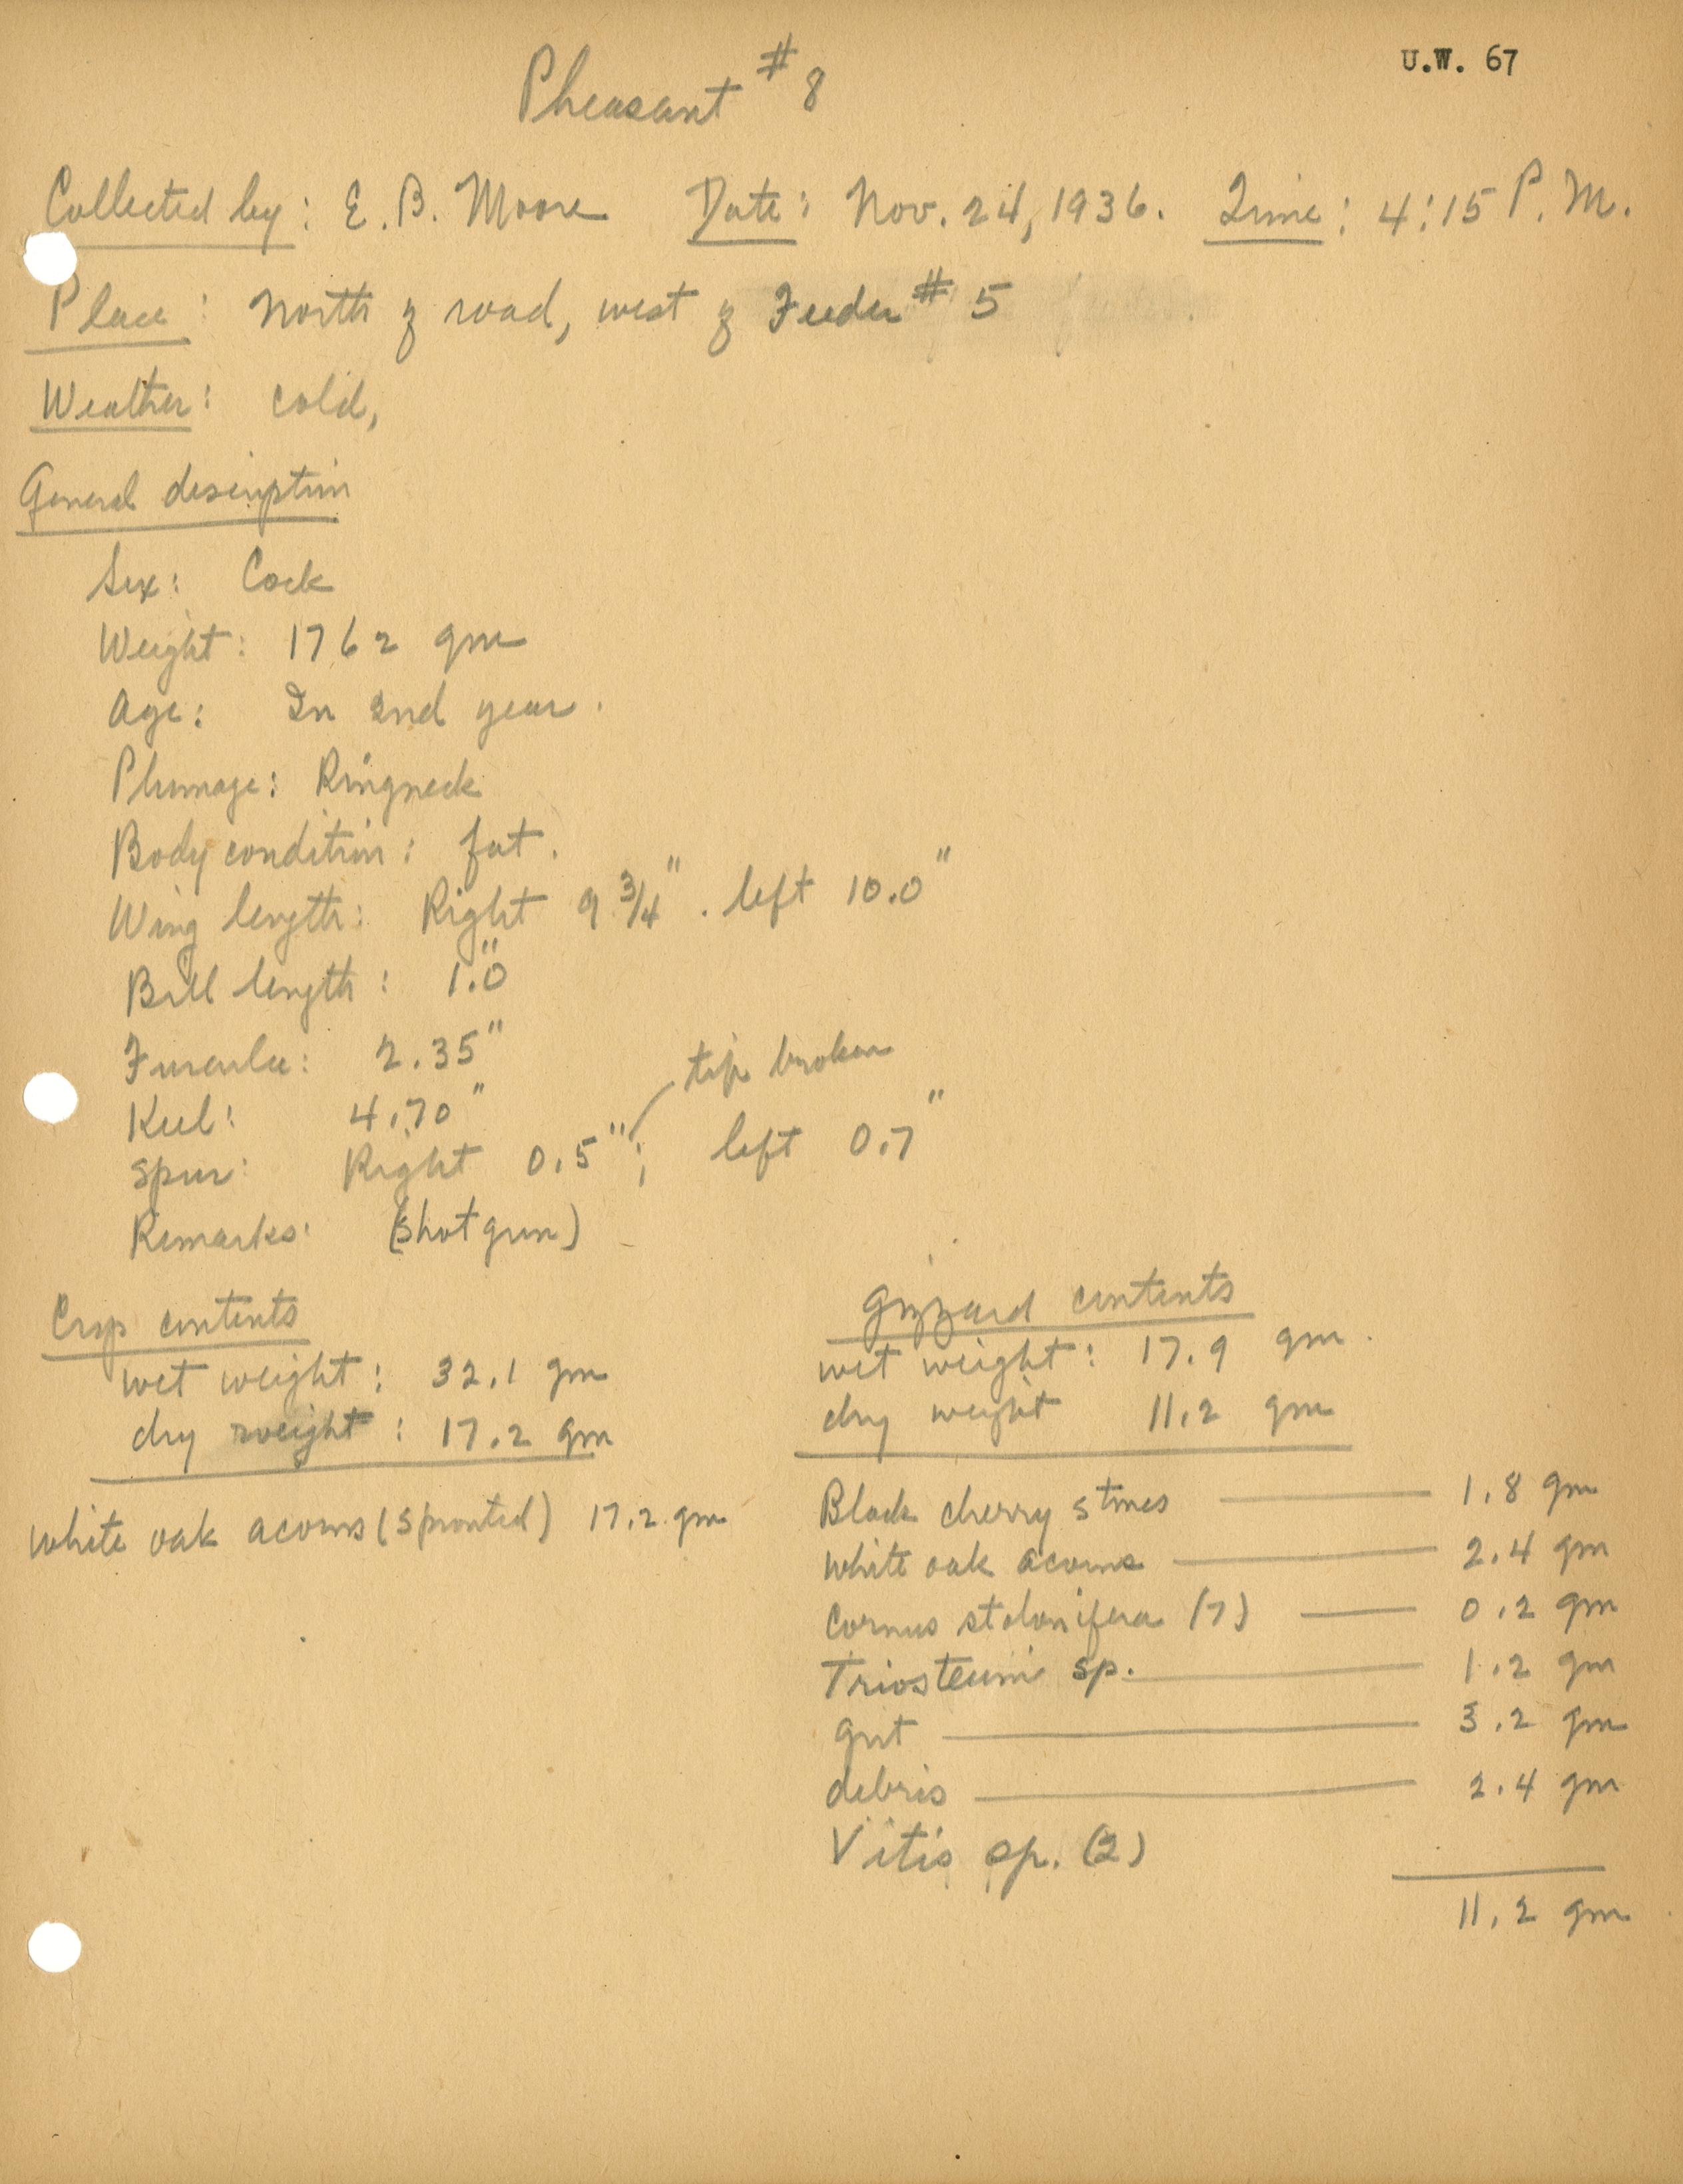 U.W. 67
Pheasant #8
Collected by: E. B. Moore Date: Nov. 24, 1936. Time: 4:15 P. M.
Place: North of road, west of Feeder #5
Weather: cold,
General description
Sex: Cock
Weight: 1762 gm
Age: In 2nd year.
Plumage: Ringneck
Body condition: fat.
Wing length: Right 9 3/4". left 10.0"
Bill length: 1.0"
Furcula: 2.35"
Keel: 4.70"
tip broken
Spur: Right 0.5"; left 0.7"
Remarks: (shot gun)
Crop contents
wet weight: 32.1 gm
dry weight: 17.2 gm
White oak acorns (sprouted) 17.2 gm
Gizzard contents
wet weight: 17.9 gm.
dry weight 11.2 gm
Black cherry stones — 1.8 gm
White oak acorns — 2.4 gm
Cornus stolonifera (7) — 0.2 gm
Triosteum sp. — 1.2 gm
grit — 3.2 gm
debris — 2.4 gm
Vitis sp. (2)
11.2 gm